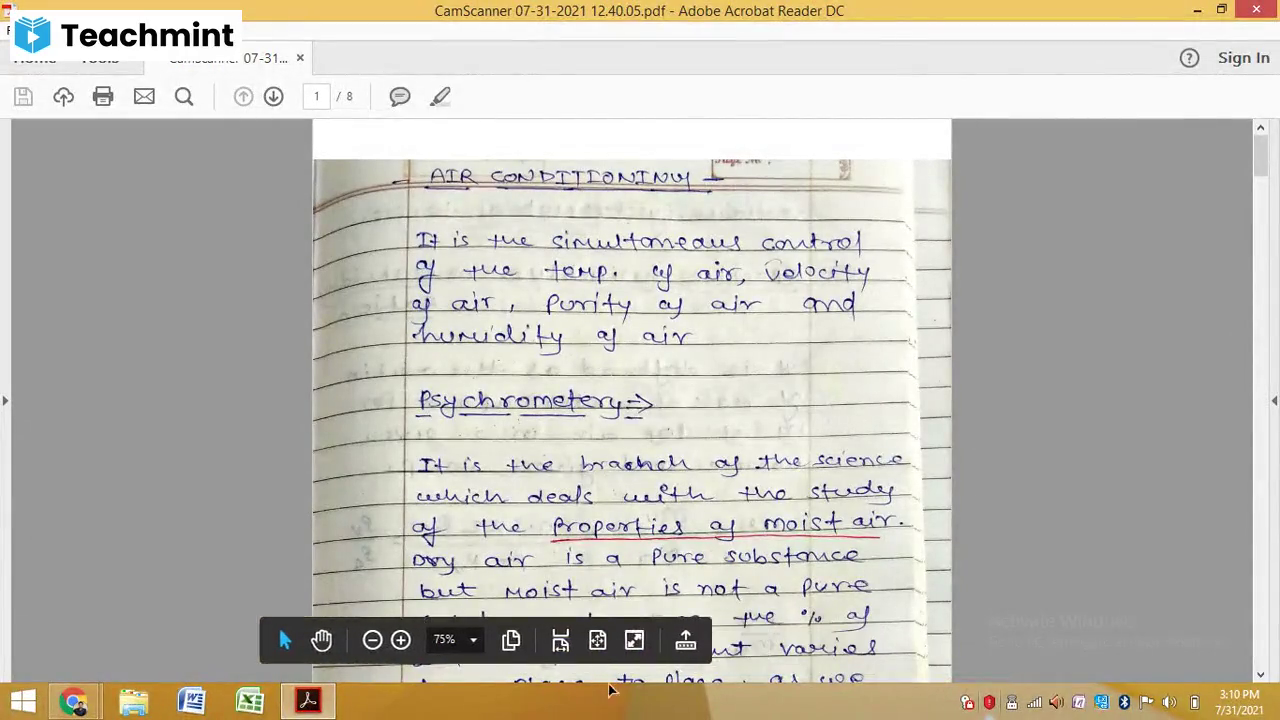 CamScanner 07-31-2021 12.40.05.pdf - Adobe Acrobat Reader DC
Teachmint
CamScanner 07-31... ×
Sign In
1 / 8
AIR CONDITIONINY
It is the simultaneous control
of the temp. of air, velocity
of air, Purity of air and
humidity of air
Psychrometery ⇒
It is the branch of the science
which deals with the study
of the Properties of moist air.
Dry air is a Pure substance
but moist air is not a pure
the % of
varies
to place, as
75%
Activate Windows
3:10 PM
7/31/2021